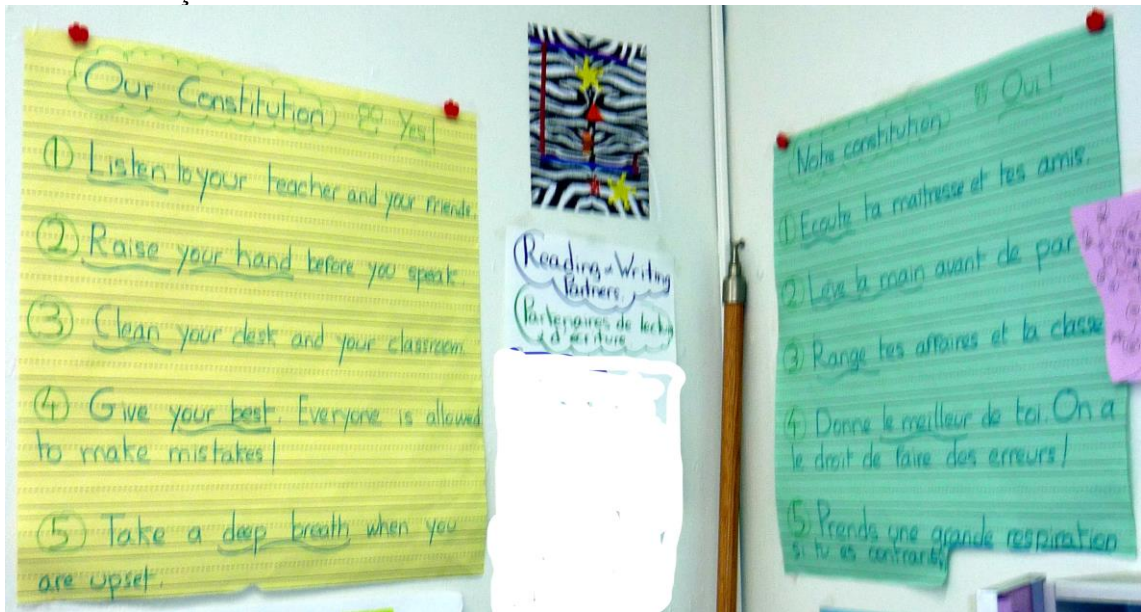 Our Constitution Yes!
① Listen to your teacher and your friends.
② Raise your hand before you speak.
③ Clean your desk and your classroom.
④ Give your best. Everyone is allowed
to make mistakes!
⑤ Take a deep breath when you
are upset.
Reading & Writing
Partners.
Partenaires de
d'écriture
Notre constitution Oui!
① Ecoute ta maîtresse et tes amis.
② Lève la main avant de par
③ Range tes affaires et la classe
④ Donne le meilleur de toi. On a
le droit de faire des erreurs!
⑤ Prends une grande respiration
si tu es